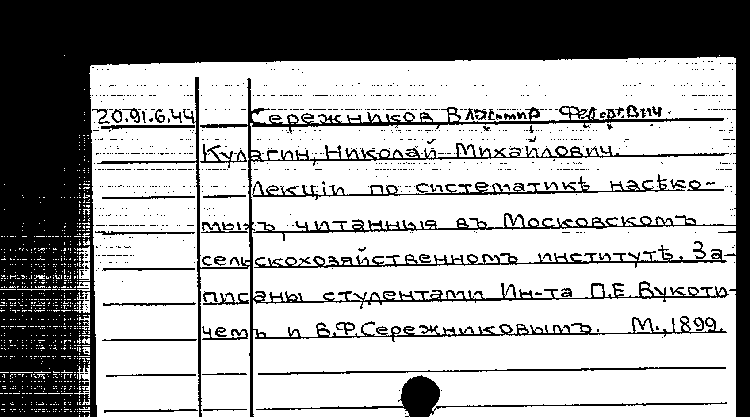 20.91.6.44 Сережников, Владимир Федорович
Кулагин, Николай Михайлович.
Лекціи по систематикѣ насѣко-
мыхъ, читанныя въ Московскомъ
сельскохозяйственномъ институтѣ. За-
писаны студентами Ин-та П.Е. Вукоти-
чемъ и В.Ф. Сережниковымъ. М., 1899.